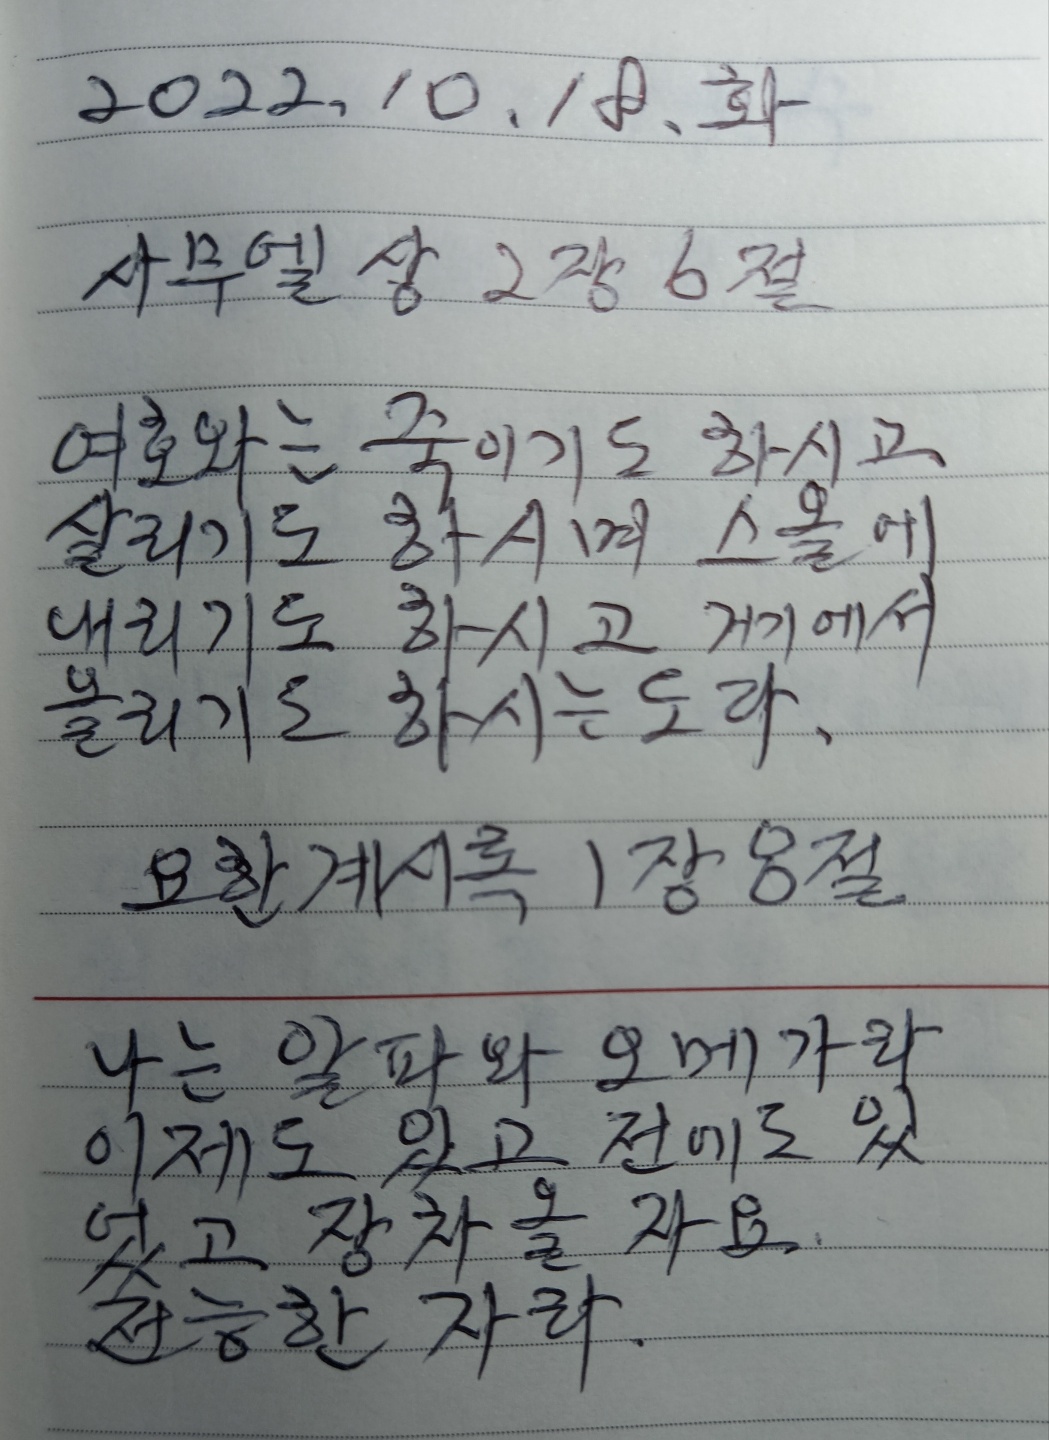 2022. 10. 18. 화
사무엘 상 2장 6절
여호와는 죽이기도 하시고
살리기도 하시며 스올에
내리기도 하시고 거기에서
올리기도 하시는도다.
요한계시록 1장 8절
나는 알파와 오메가라
이제도 있고 전에도 있
었고 장차 올 자요.
전능한 자라.